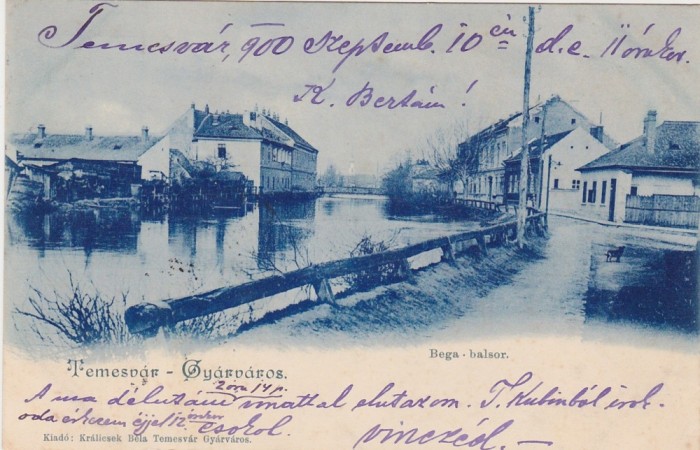 Temesvár, 900 Szeptemb. 10 én d.e. 11 órakor.
K. Bertám!
Bega - balsor.
Temesvár - Gyárváros.
2 óra 14 p.
A ma délutáni vonattal elutazom. T. Kubinból irok.
oda érkezem éjjel 12 órakor csokol.
vinczéd. —
Kiadó: Králicsek Béla Temesvár Gyárváros.